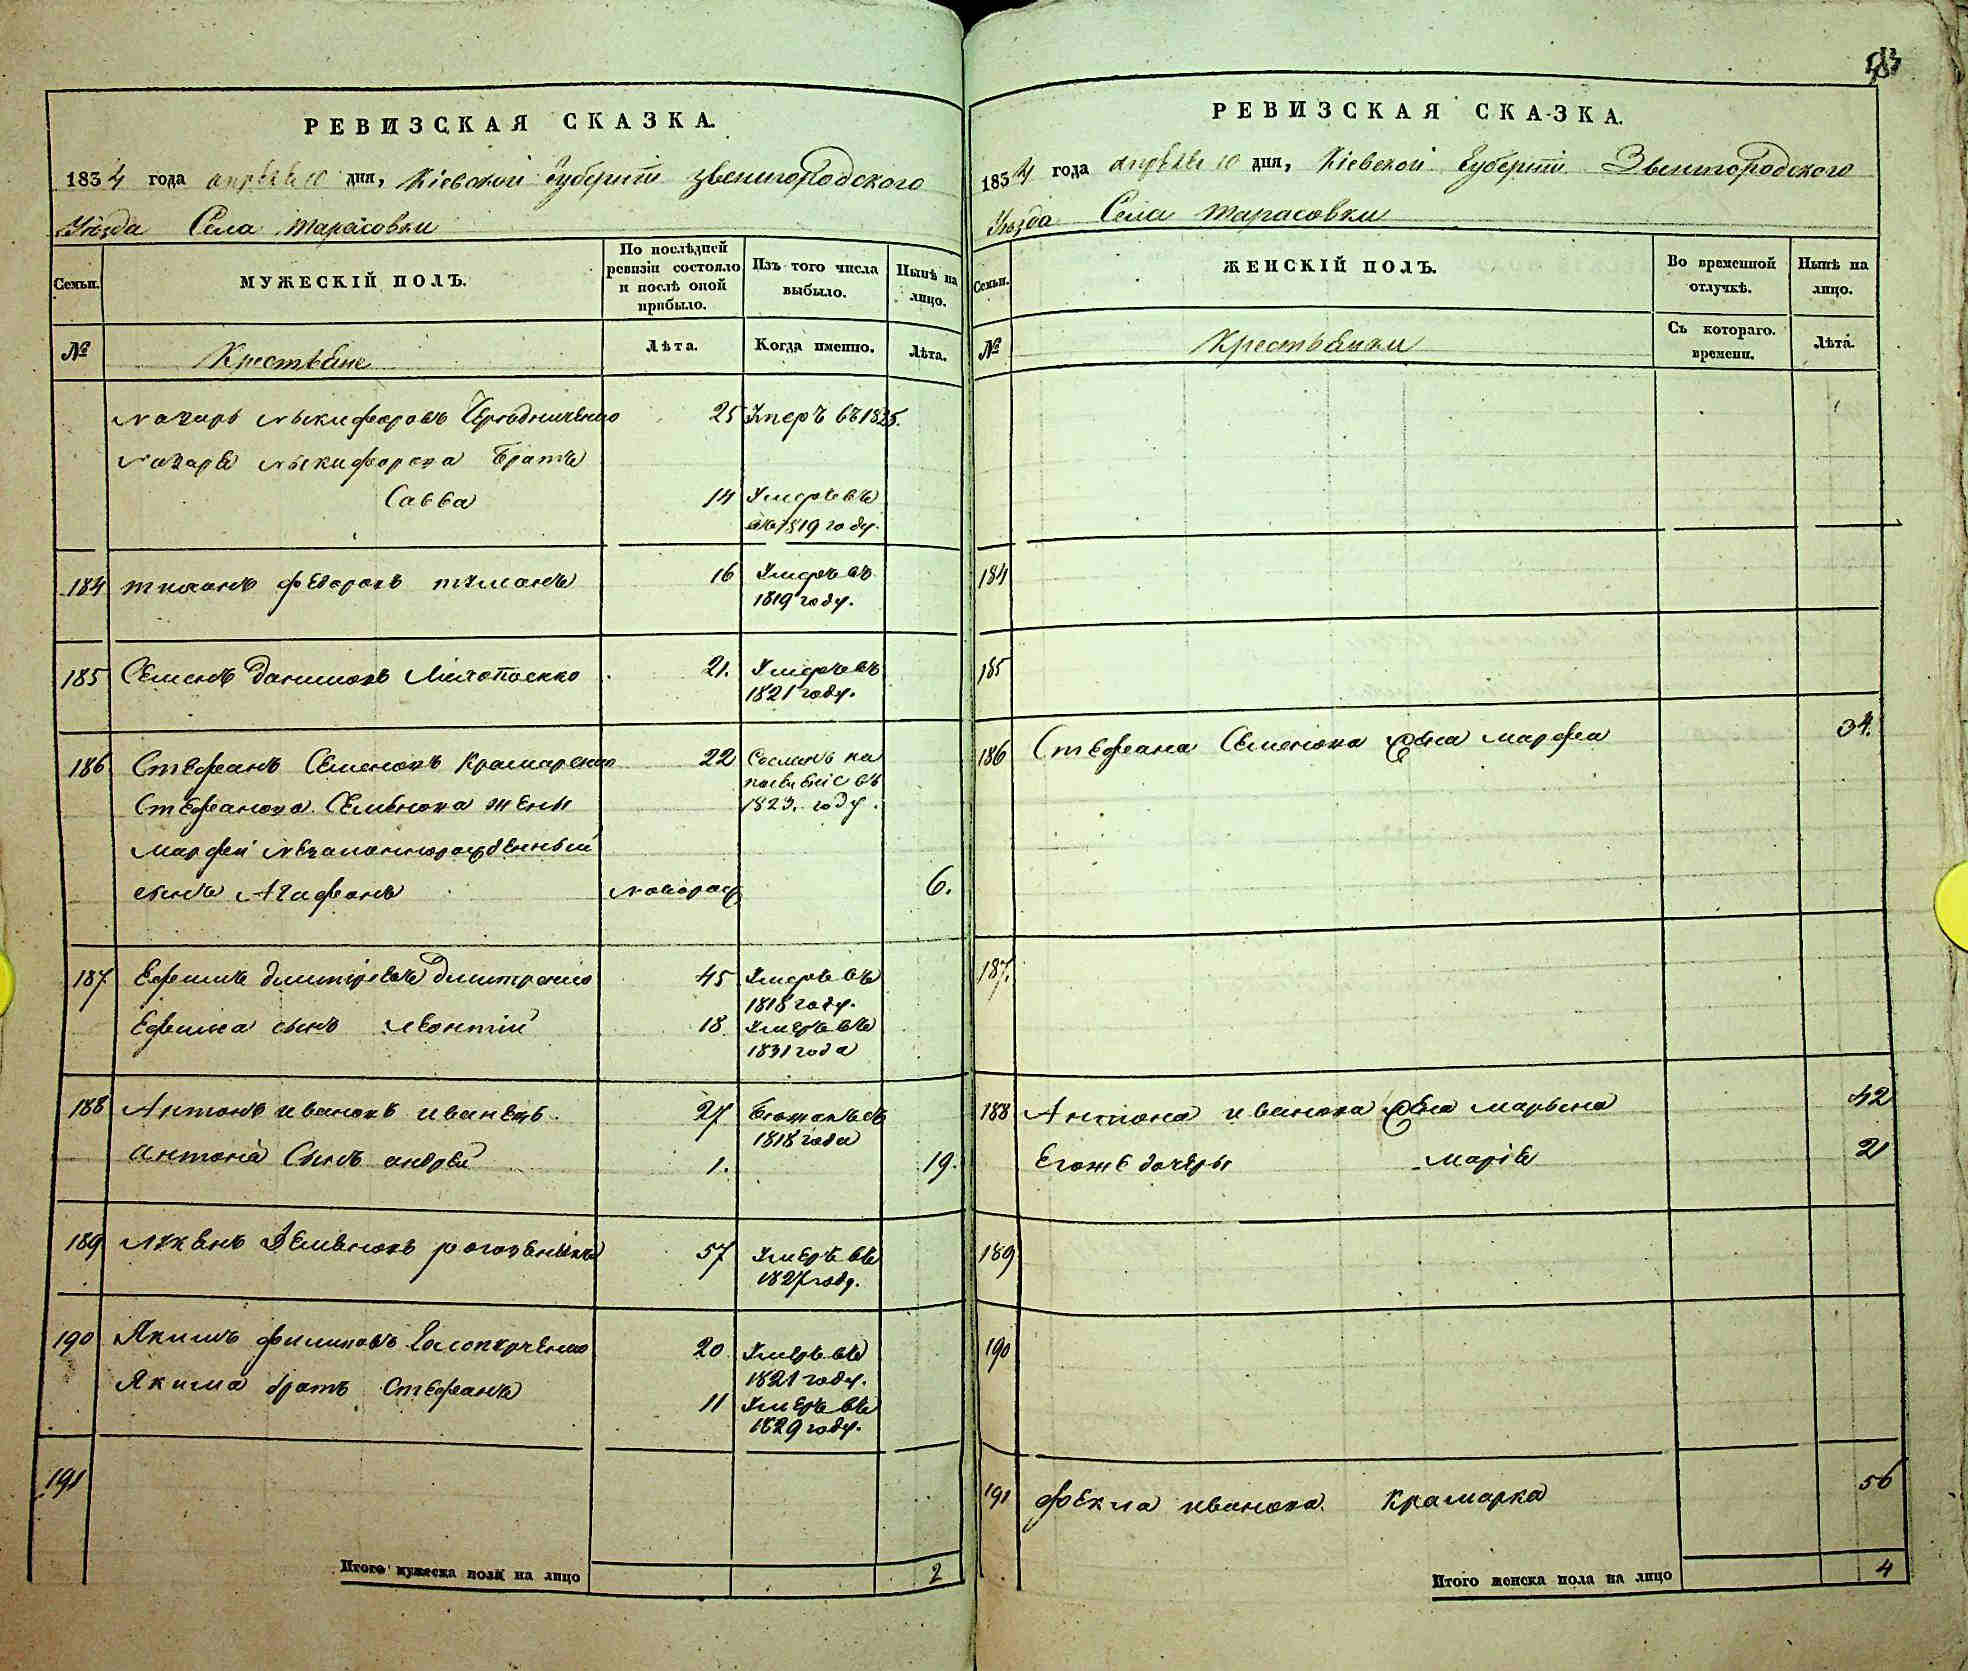 РЕВИЗСКАЯ СКАЗКА.
1834 года апреля 10 дня, Кіевской Губерніи Звенигородского
Уезда Села Тарасовки
Семьи.
МУЖЕСКІЙ ПОЛЪ.
По послѣдней ревизіи состояло и послѣ оной прибыло.
Изъ того числа выбыло.
Нынѣ на лицо.
№
Крестьяне
Лѣта.
Когда именно.
Лѣта.
Назаръ Никифоровъ 25 Умеръ въ 1825.
Назара Никифорова Братъ
Савва 14 Умеръ въ
1819 году.
184 Федоровъ 16 Умеръ въ
1819 году.
185 Семенъ Даниловъ 21. Умеръ въ
1821 году.
186 Стефанъ Семеновъ Крамаренко 22 Сосланъ на
въ
Стефанова Семенова жены 1823. году.
Марфы незаконнорожденный
сынъ Агафонъ новорож 6.
187 Ефимъ Дмитріевъ Дмитренко 45 Умеръ въ
1818 году.
Ефима сынъ Леонтій 18. Умеръ въ
1831 года
188 Антонъ Ивановъ Иванецъ. 27 Бежалъ въ
1818 года
Антона Сынъ Андрей 1. 19.
189 57 Умеръ въ
1827 году.
190 Якимъ Филиповъ 20 Умеръ въ
1821 году.
Якима братъ Стефанъ 11 Умеръ въ
1829 году.
191
Итого мужеска пола на лицо 2
РЕВИЗСКАЯ СКАЗКА.
1834 года апреля 10 дня, Кіевской Губерніи Звенигородского
Уезда Села Тарасовки
Семьи.
ЖЕНСКІЙ ПОЛЪ.
Во временной отлучкѣ.
Нынѣ на лицо.
№
Крестьянки
Съ котораго. времени.
Лѣта.
184
185
186 Стефана Семенова жена Марфа 34.
187.
188 Антона Иванова жена Марьяна 42
Егоже дочеры Марія 21
189
190
191 Фекла Иванова. Крамарка 56
Итого женска пола на лицо 4